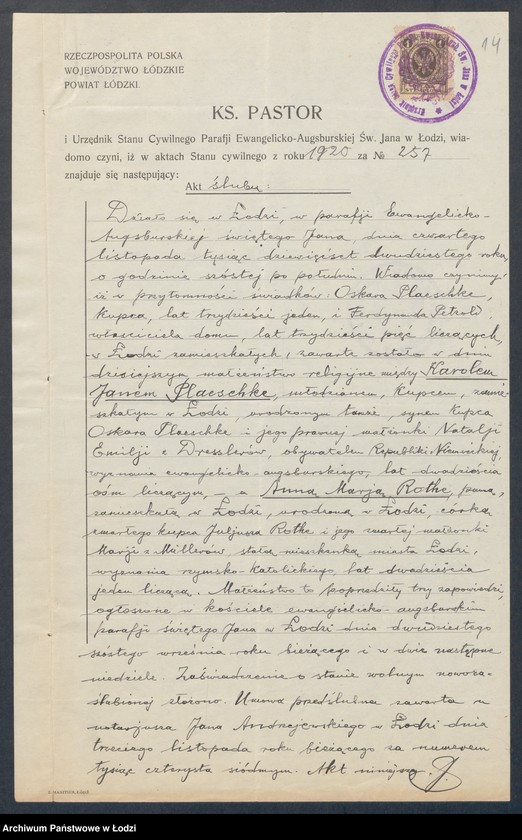 14
RZECZPOSPOLITA POLSKA
WOJEWÓDZTWO ŁÓDZKIE
POWIAT ŁÓDZKI.
KS. PASTOR
i Urzędnik Stanu Cywilnego Parafji Ewangelicko-Augsburskiej Św. Jana w Łodzi, wia-
domo czyni, iż w aktach Stanu cywilnego z roku 1920 za № 257
znajduje się następujący:
Akt ślubu:
Działo się w Łodzi, w parafji Ewangelicko-
Augsburskiej świętego Jana, dnia czwartego
listopada tysiąc dziewięćset dwudziestego roku,
o godzinie szóstej po południu. Wiadomo czynimy,
iż w przytomności świadków: Oskara Plaeschke,
kupca, lat trzydzieści jeden, i Ferdynanda Petrold,
właściciela domu, lat trzydzieści pięć liczących,
w Łodzi zamieszkałych, zawarte zostało w dniu
dzisiejszym małżeństwo religijne między Karolem
Janem Plaeschke, młodzianem, kupcem, zamie-
szkałym w Łodzi, urodzonym tamże, synem kupca
Oskara Plaeschke i jego prawnej małżonki Natalji
Emilji z Dresslerów, obywatelem Republiki Niemieckiej,
wyznania ewangelicko-augsburskiego, lat dwadzieścia
ośm liczącym, – a Anną Marją Rothe, panną,
zamieszkałą w Łodzi, urodzoną w Łodzi, córką
zmarłego kupca Juljusza Rothe i jego zmarłej małżonki
Marji z Millerów, stałą mieszkanką miasta Łodzi,
wyznania rzymsko-katolickiego, lat dwadzieścia
jeden liczącą. Małżeństwo to poprzedziły trzy zapowiedzi,
ogłoszone w kościele ewangielicko-augsburskim
parafji świętego Jana w Łodzi dnia dwudziestego
szóstego września roku bieżącego i w dwie następne
niedziele. Zaświadczenie o stanie wolnym nowoza-
ślubionej złożono. Umowa przedślubna zawarta u
notarjusza Jana Andrzejewskiego w Łodzi dnia
trzeciego listopada roku bieżącego za numerem
tysiąc czterysta siódmym. Akt niniejszy
Archiwum Państwowe w Łodzi